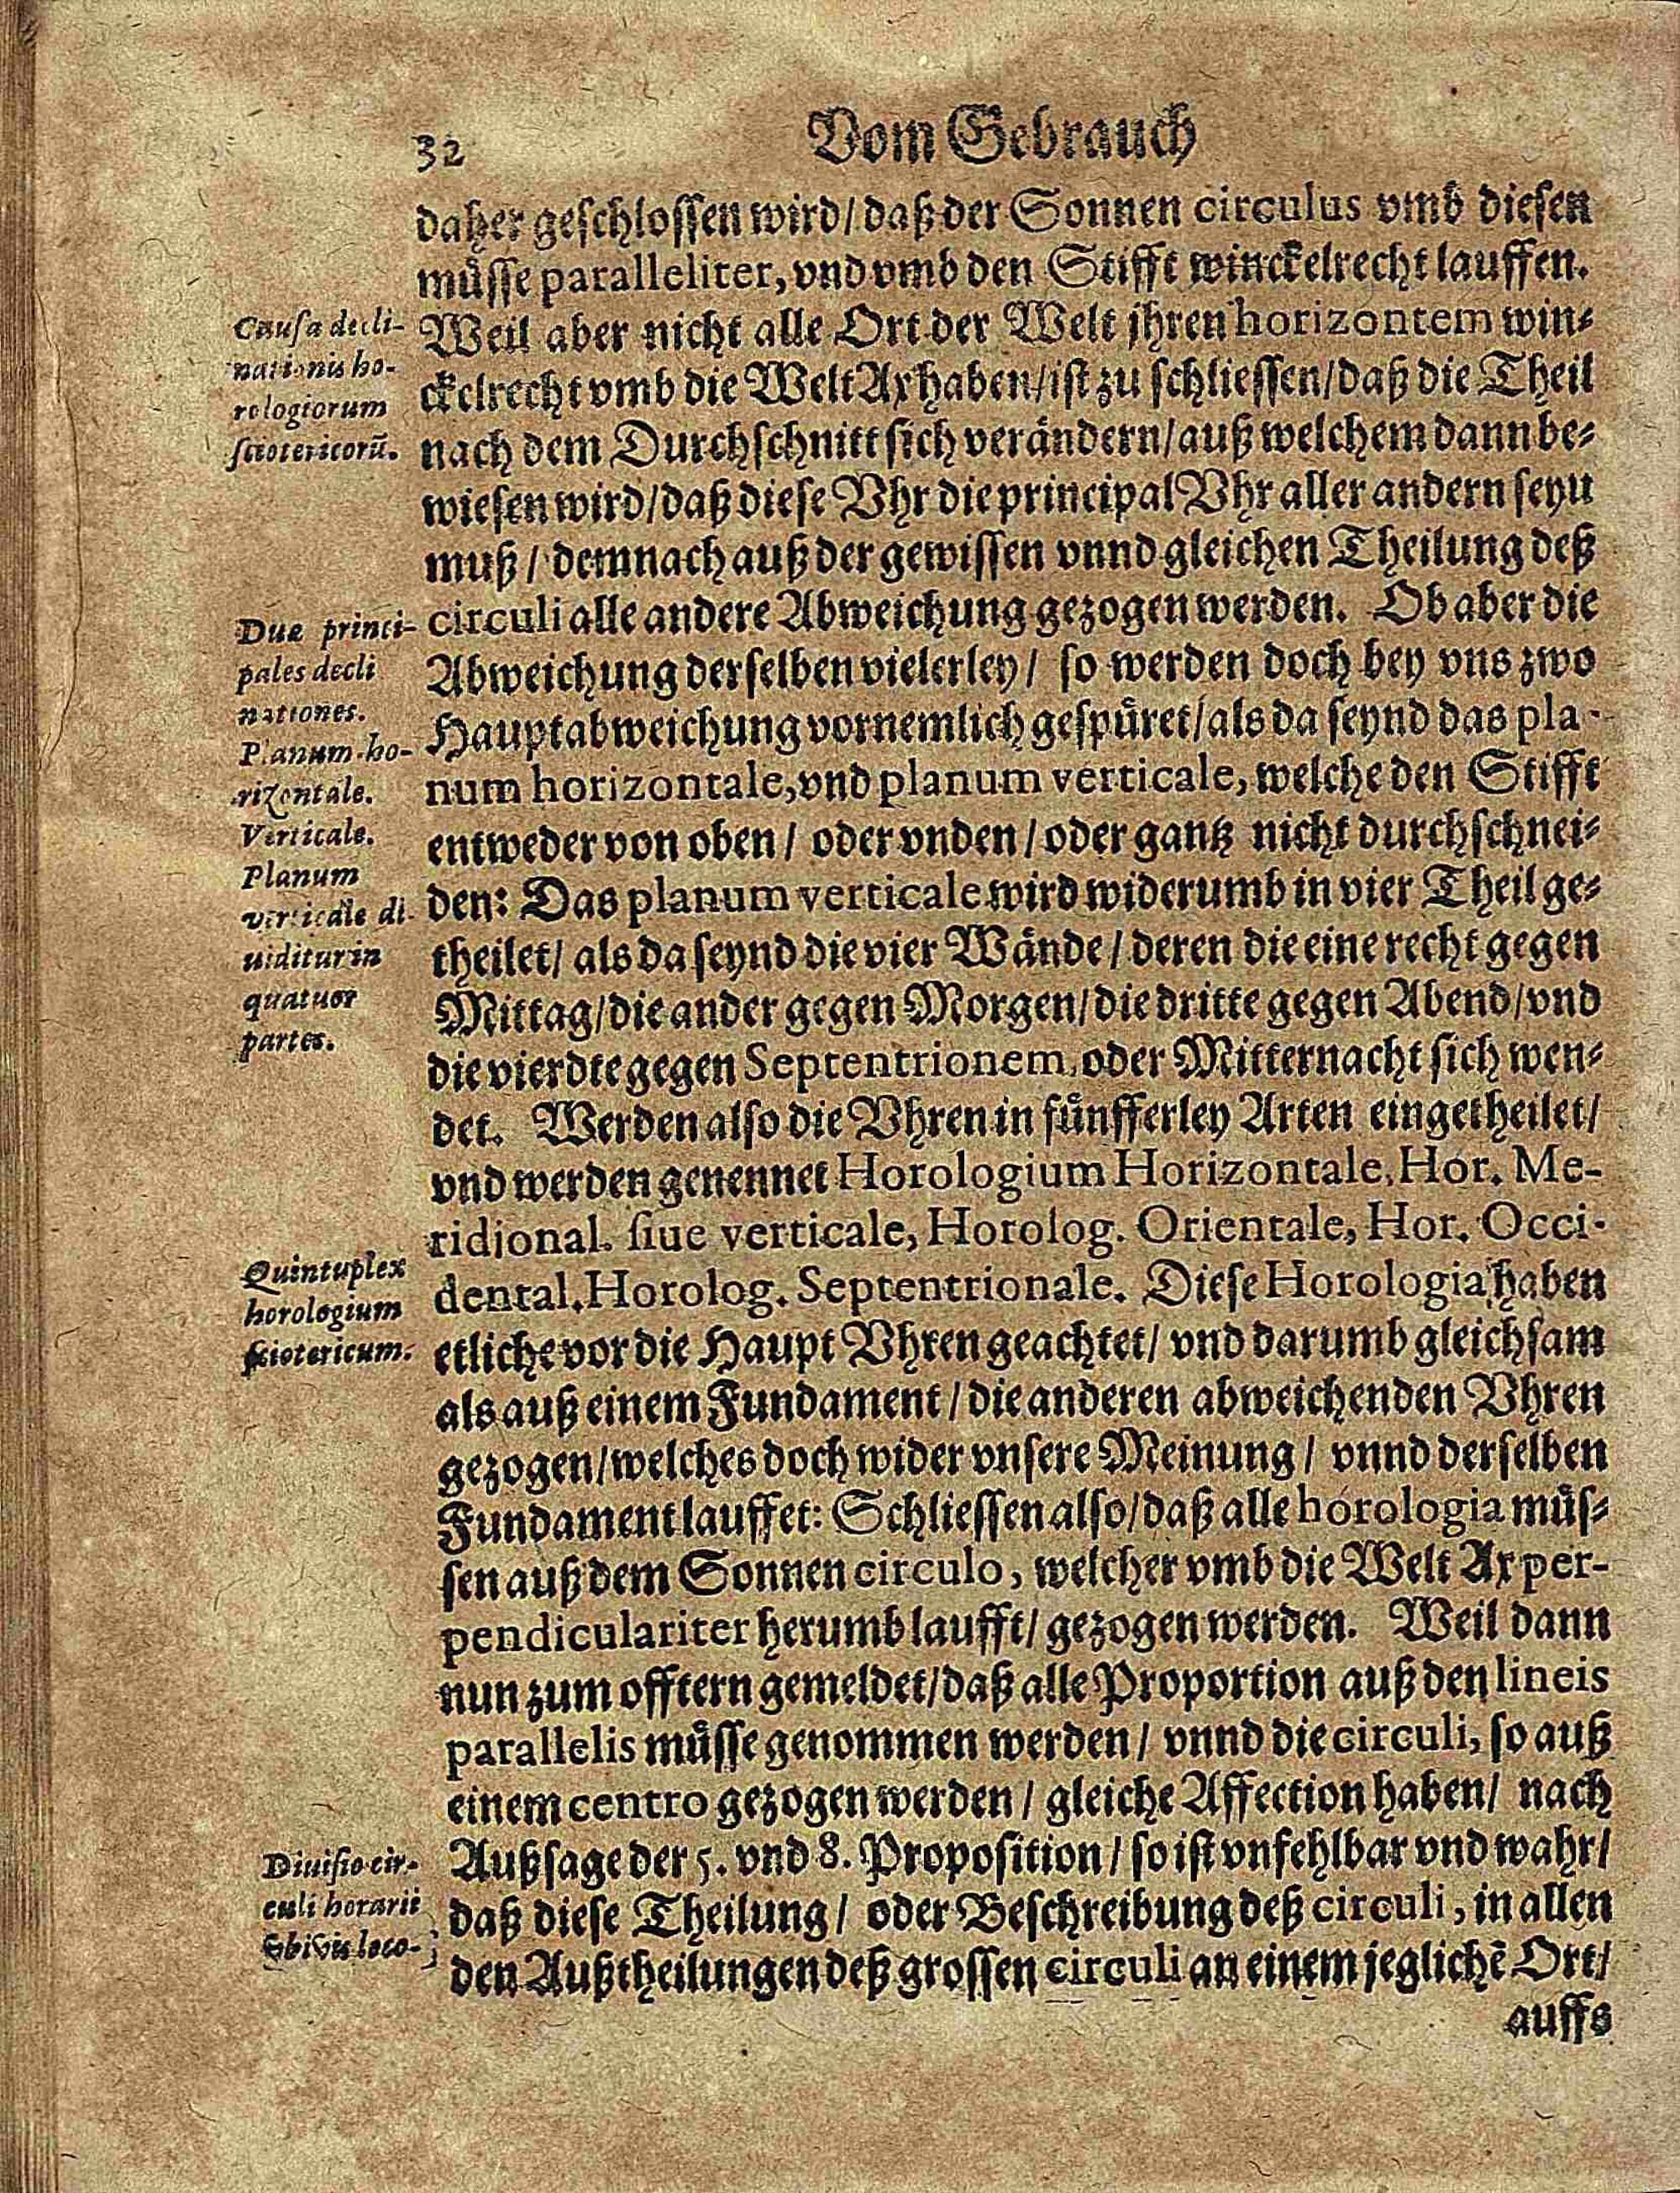 32
Vom Gebrauch
daher geschlossen wird/ daß der Sonnen circulus vmb diesen
müsse paralleliter, vnd vmb den Stifft winckelrecht lauffen.
Weil aber nicht alle Ort der Welt jhren horizontem win-
ckelrecht vmb die Welt Ax haben/ ist zu schliessen/ daß die Theil
nach dem Durchschnitt sich verändern/ auß welchem dann be-
wiesen wird/ daß diese Vhr die principal Vhr aller andern seyn
muß/ demnach auß der gewissen vnnd gleichen Theilung deß
circuli alle andere Abweichung gezogen werden. Ob aber die
Abweichung derselben vielerley/ so werden doch bey vns zwo
Hauptabweichung vornemlich gespüret/ als da seynd das pla-
num horizontale, vnd planum verticale, welche den Stifft
entweder von oben/ oder vnden/ oder gantz nicht durchschnei-
den: Das planum verticale wird widerumb in vier Theil ge-
theilet/ als da seynd die vier Wände/ deren die eine recht gegen
Mittag/ die ander gegen Morgen/ die dritte gegen Abend/ vnd
die vierdte gegen Septentrionem, oder Mitternacht sich wen-
det. Werden also die Vhren in fünfferley Arten eingetheilet/
vnd werden genennet Horologium Horizontale, Hor. Me-
ridional. siue verticale, Horolog. Orientale, Hor. Occi-
dental. Horolog. Septentrionale. Diese Horologia haben
etliche vor die Haupt Vhren geachtet/ vnd darumb gleichsam
als auß einem Fundament/ die anderen abweichenden Vhren
gezogen/ welches doch wider vnsere Meinung/ vnnd derselben
Fundament lauffet: Schliessen also/ daß alle horologia müs-
sen auß dem Sonnen circulo, welcher vmb die Welt Ax per-
pendiculariter herumb laufft/ gezogen werden. Weil dann
nun zum offtern gemeldet/ daß alle Proportion auß den lineis
parallelis müsse genommen werden/ vnnd die circuli, so auß
einem centro gezogen werden/ gleiche Affection haben/ nach
Außsage der 5. vnd 8. Proposition/ so ist vnfehlbar vnd wahr/
daß diese Theilung/ oder Beschreibung deß circuli, in allen
den Außtheilungen deß grossen circuli an einem jeglichē Ort/
auffs
Causa decli-
nationis ho-
rologiorum
sciotericorū.
Duæ princi-
pales decli
nationes.
Planum ho-
rizontale.
Verticale.
Planum
verticale di-
uiditur in
quatuor
partes.
Quintuplex
horologium
sciotericum.
Diuisio cir-
culi horarii
vbivis loco-